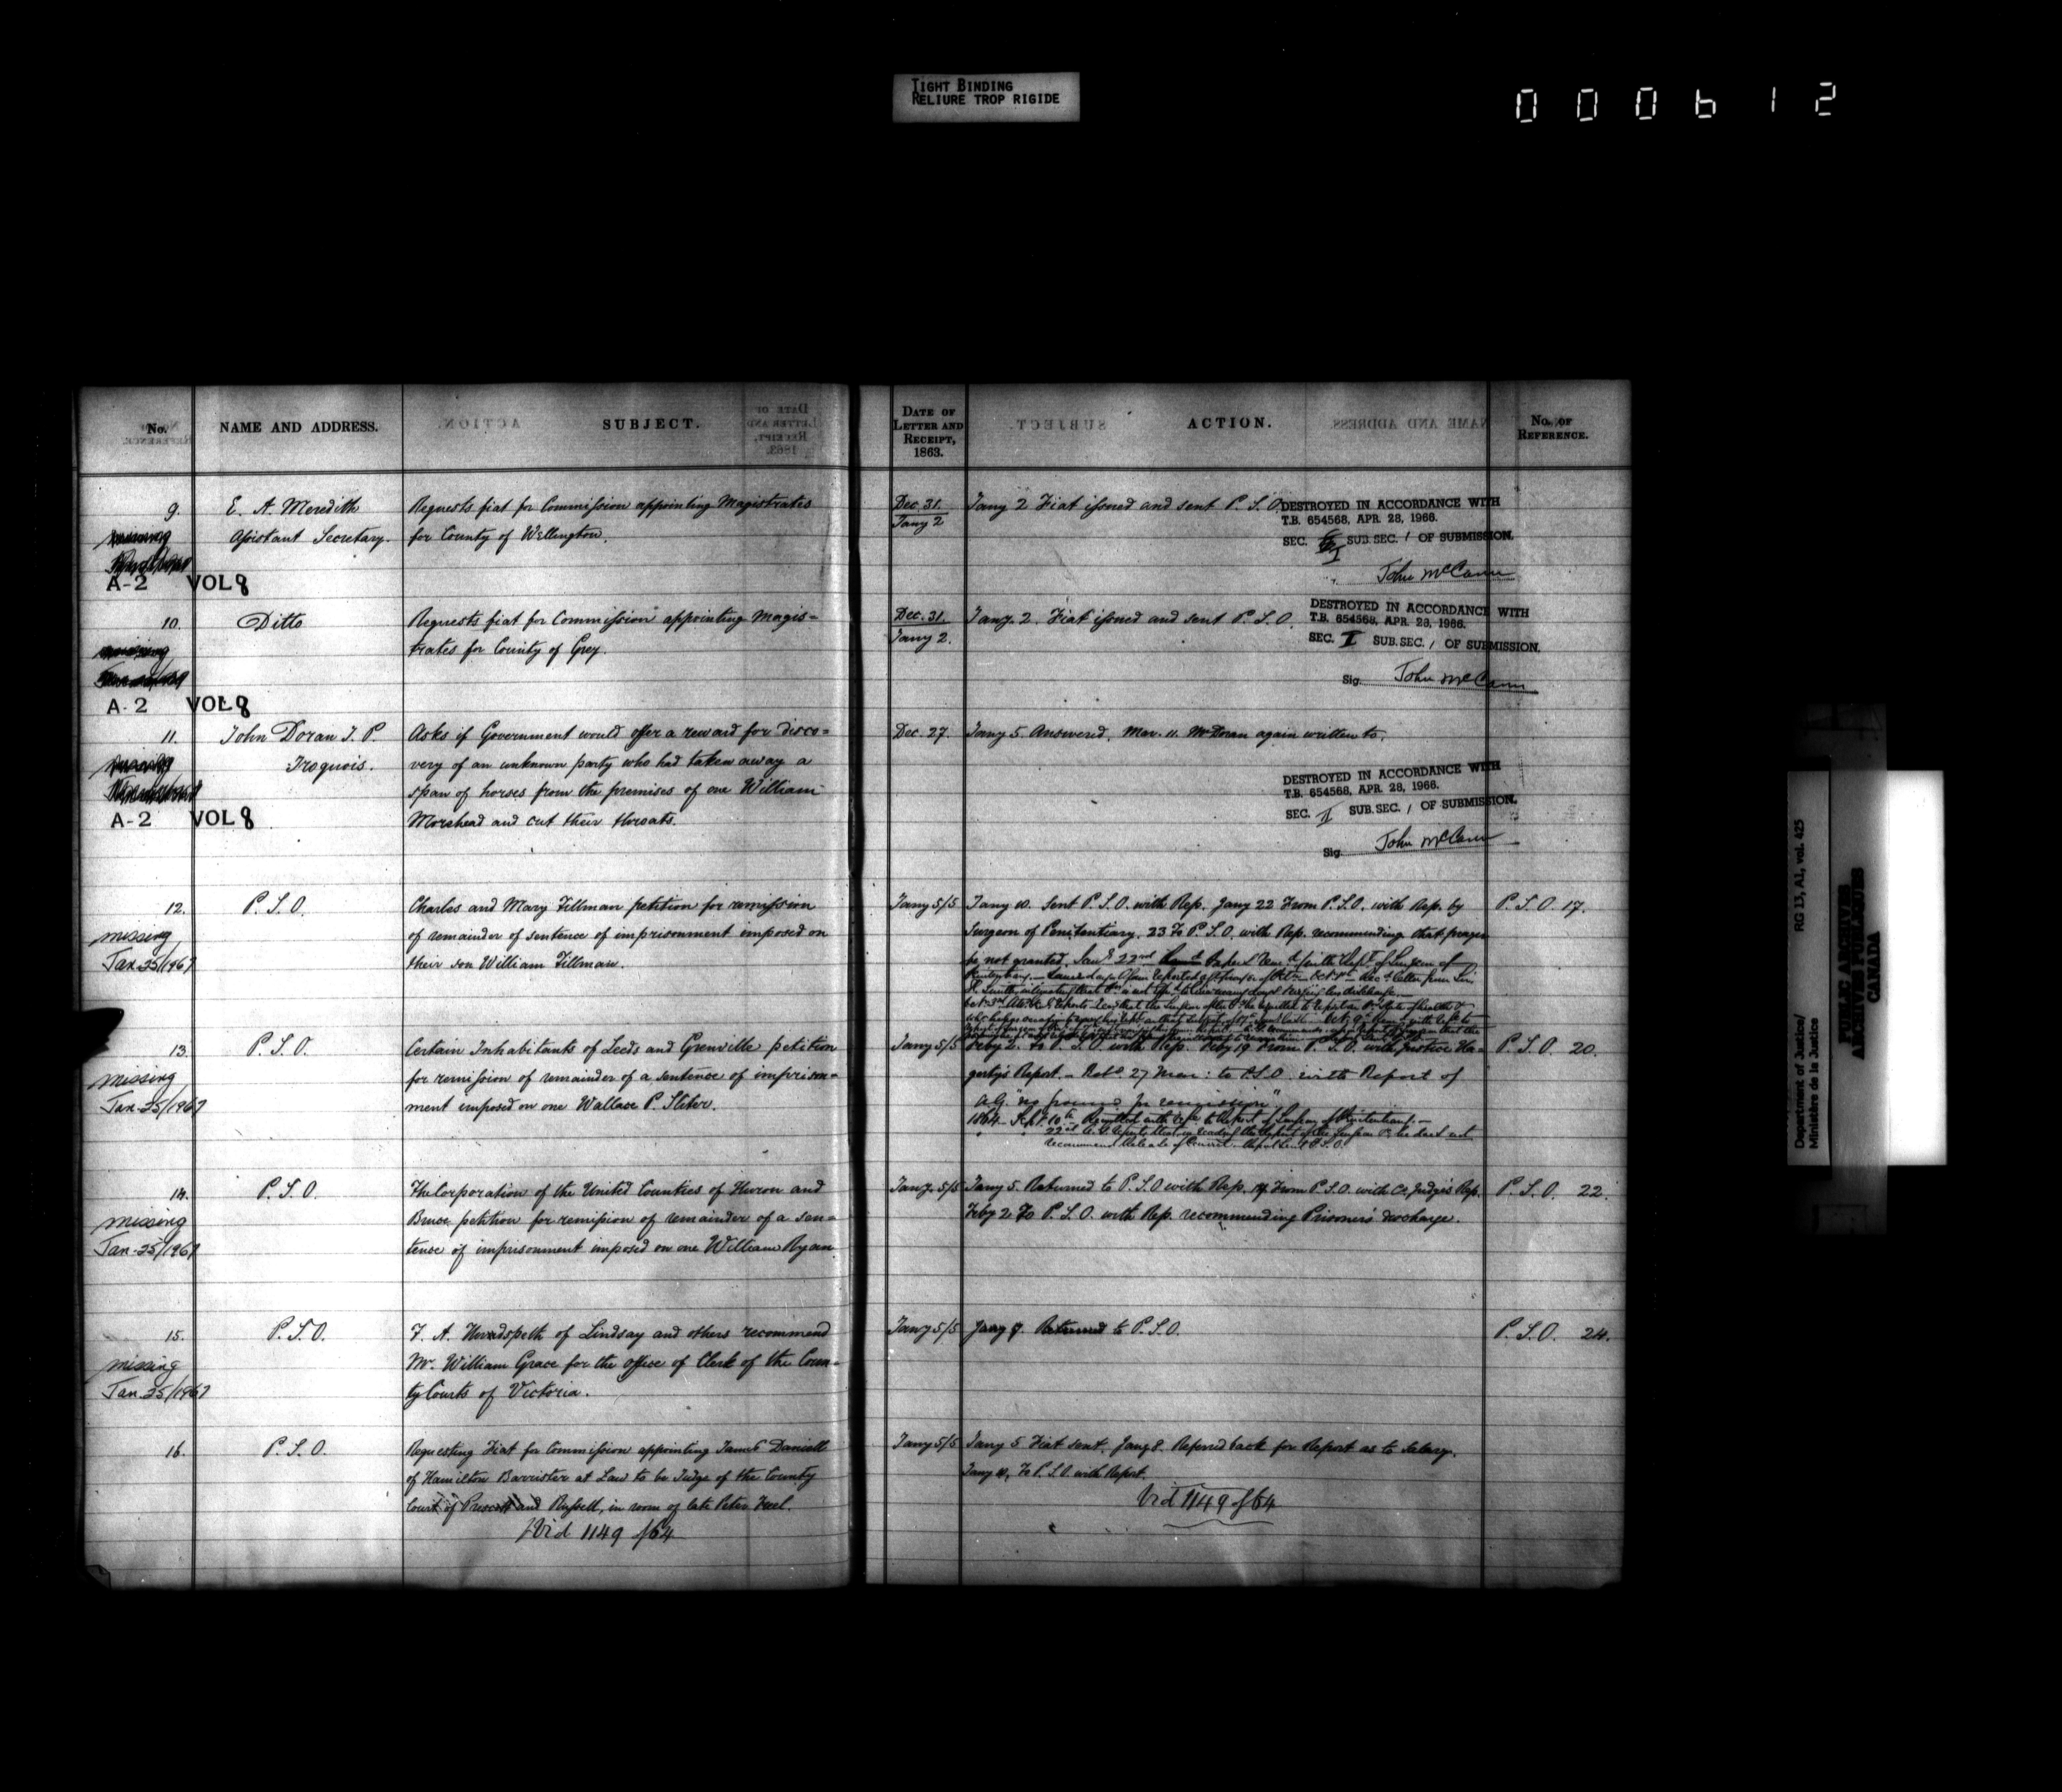 TIGHT BINDING
RELIURE TROP RIGIDE
000612
No.
NAME AND ADDRESS.
SUBJECT.
DATE OF
LETTER AND
RECEIPT,
1863.
ACTION.
No. OF
REFERENCE.
9.
E. A. Meredith
Assistant Secretary.
A-2 VOL 8
Requests fiat for Commission appointing Magistrates
for County of Wellington.
Dec. 31.
Jany 2
Jany 2 Fiat issued and sent P. S. O.
DESTROYED IN ACCORDANCE WITH
T.B. 654568, APR. 28, 1966.
SEC. I SUB.SEC. 1 OF SUBMISSION.
John McCann
10.
Ditto
A-2 VOL 8
Requests fiat for Commission appointing Magis=
trates for County of Grey.
Dec. 31.
Jany 2.
Jany. 2 Fiat issued and sent P. S. O.
DESTROYED IN ACCORDANCE WITH
T.B. 654568, APR. 28, 1966.
SEC. I SUB.SEC. 1 OF SUBMISSION.
Sig. John McCann
11.
John Doran J. P.
Iroquois.
A-2 VOL 8
Asks if Government would offer a reward for disco=
very of an unknown party who had taken away a
span of horses from the premises of one William
Morshead and cut their throats.
Dec. 27.
Jany 5. Answered. Mar. 11. Mr Doran again written to.
DESTROYED IN ACCORDANCE WITH
T.B. 654568, APR. 28, 1966.
SEC. II SUB.SEC. 1 OF SUBMISSION.
Sig. John McCann
12.
missing
Jan 25/1967
P. S. O.
Charles and Mary Tillman petition for remission
of remainder of sentence of imprisonment imposed on
their son William Tillman.
Jany 5/5
Jany 10. Sent P. S. O. with Rep. Jany 22 From P. S. O. with Rep. by
Surgeon of Penitentiary. 23 To P. S. O. with Rep. recommending that prayer
be not granted.
P. S. O. 17.
13.
missing
Jan 25/1967
P. S. O.
Certain Inhabitants of Leeds and Grenville petition
for remission of remainder of a sentence of imprison=
ment imposed on one Wallace P. Sliter.
Jany 5/5
Feby 2. To P. S. O. with Rep. Feby 19 From P. S. O. with Justice Ha=
garty's Report. 27 Mar: to P.S.O. with Report of
A.G. "no grounds for remission"
1864 Sept 10th
P. S. O. 20.
14.
missing
Jan 25/1967
P. S. O.
The Corporation of the United Counties of Huron and
Bruce petition for remission of remainder of a sen=
tence of imprisonment imposed on one William Ryan
Jany. 5/5
Jany 5. Returned to P. S. O with Rep. From P. S. O. with Co. Judge's Rep.
Feby 2 To P. S. O. with Rep. recommending Prisoner's discharge.
P. S. O. 22.
15.
missing
Jan 25/1967
P. S. O.
of Lindsay and others recommend
Mr. William Grace for the office of Clerk of the Coun=
ty Courts of Victoria.
Jany 5/5
Jany 9. Returned to P. S. O.
P. S. O. 24.
16.
P. S. O.
Requesting Fiat for Commission appointing James Daniell
of Hamilton Barrister at Law to be Judge of the County
Court of Prescott and Russell, in room of late Peter Freel.
Vid 1149 of 64
Jany 5/5
Jany 5 Fiat sent. Jany 8. Referred back for Report as to Salary.
Jany 10, To P. S. O with Report.
Vid 1149 of 64
Department of Justice/
Ministère de la Justice
RG 13, A1, vol. 425
PUBLIC ARCHIVES
ARCHIVES PUBLIQUES
CANADA